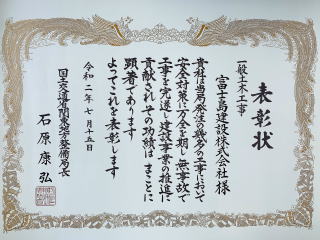 表彰状
一般土木工事
富士島建設株式会社 様
貴社は当局発注の幾多の工事において
安全対策に万全を期し無事故で
工事を完遂し建設事業の推進に
貢献されその功績は まことに
顕著であります
よってこれを表彰します
令和二年七月十五日
国土交通省関東地方整備局長
石原康弘